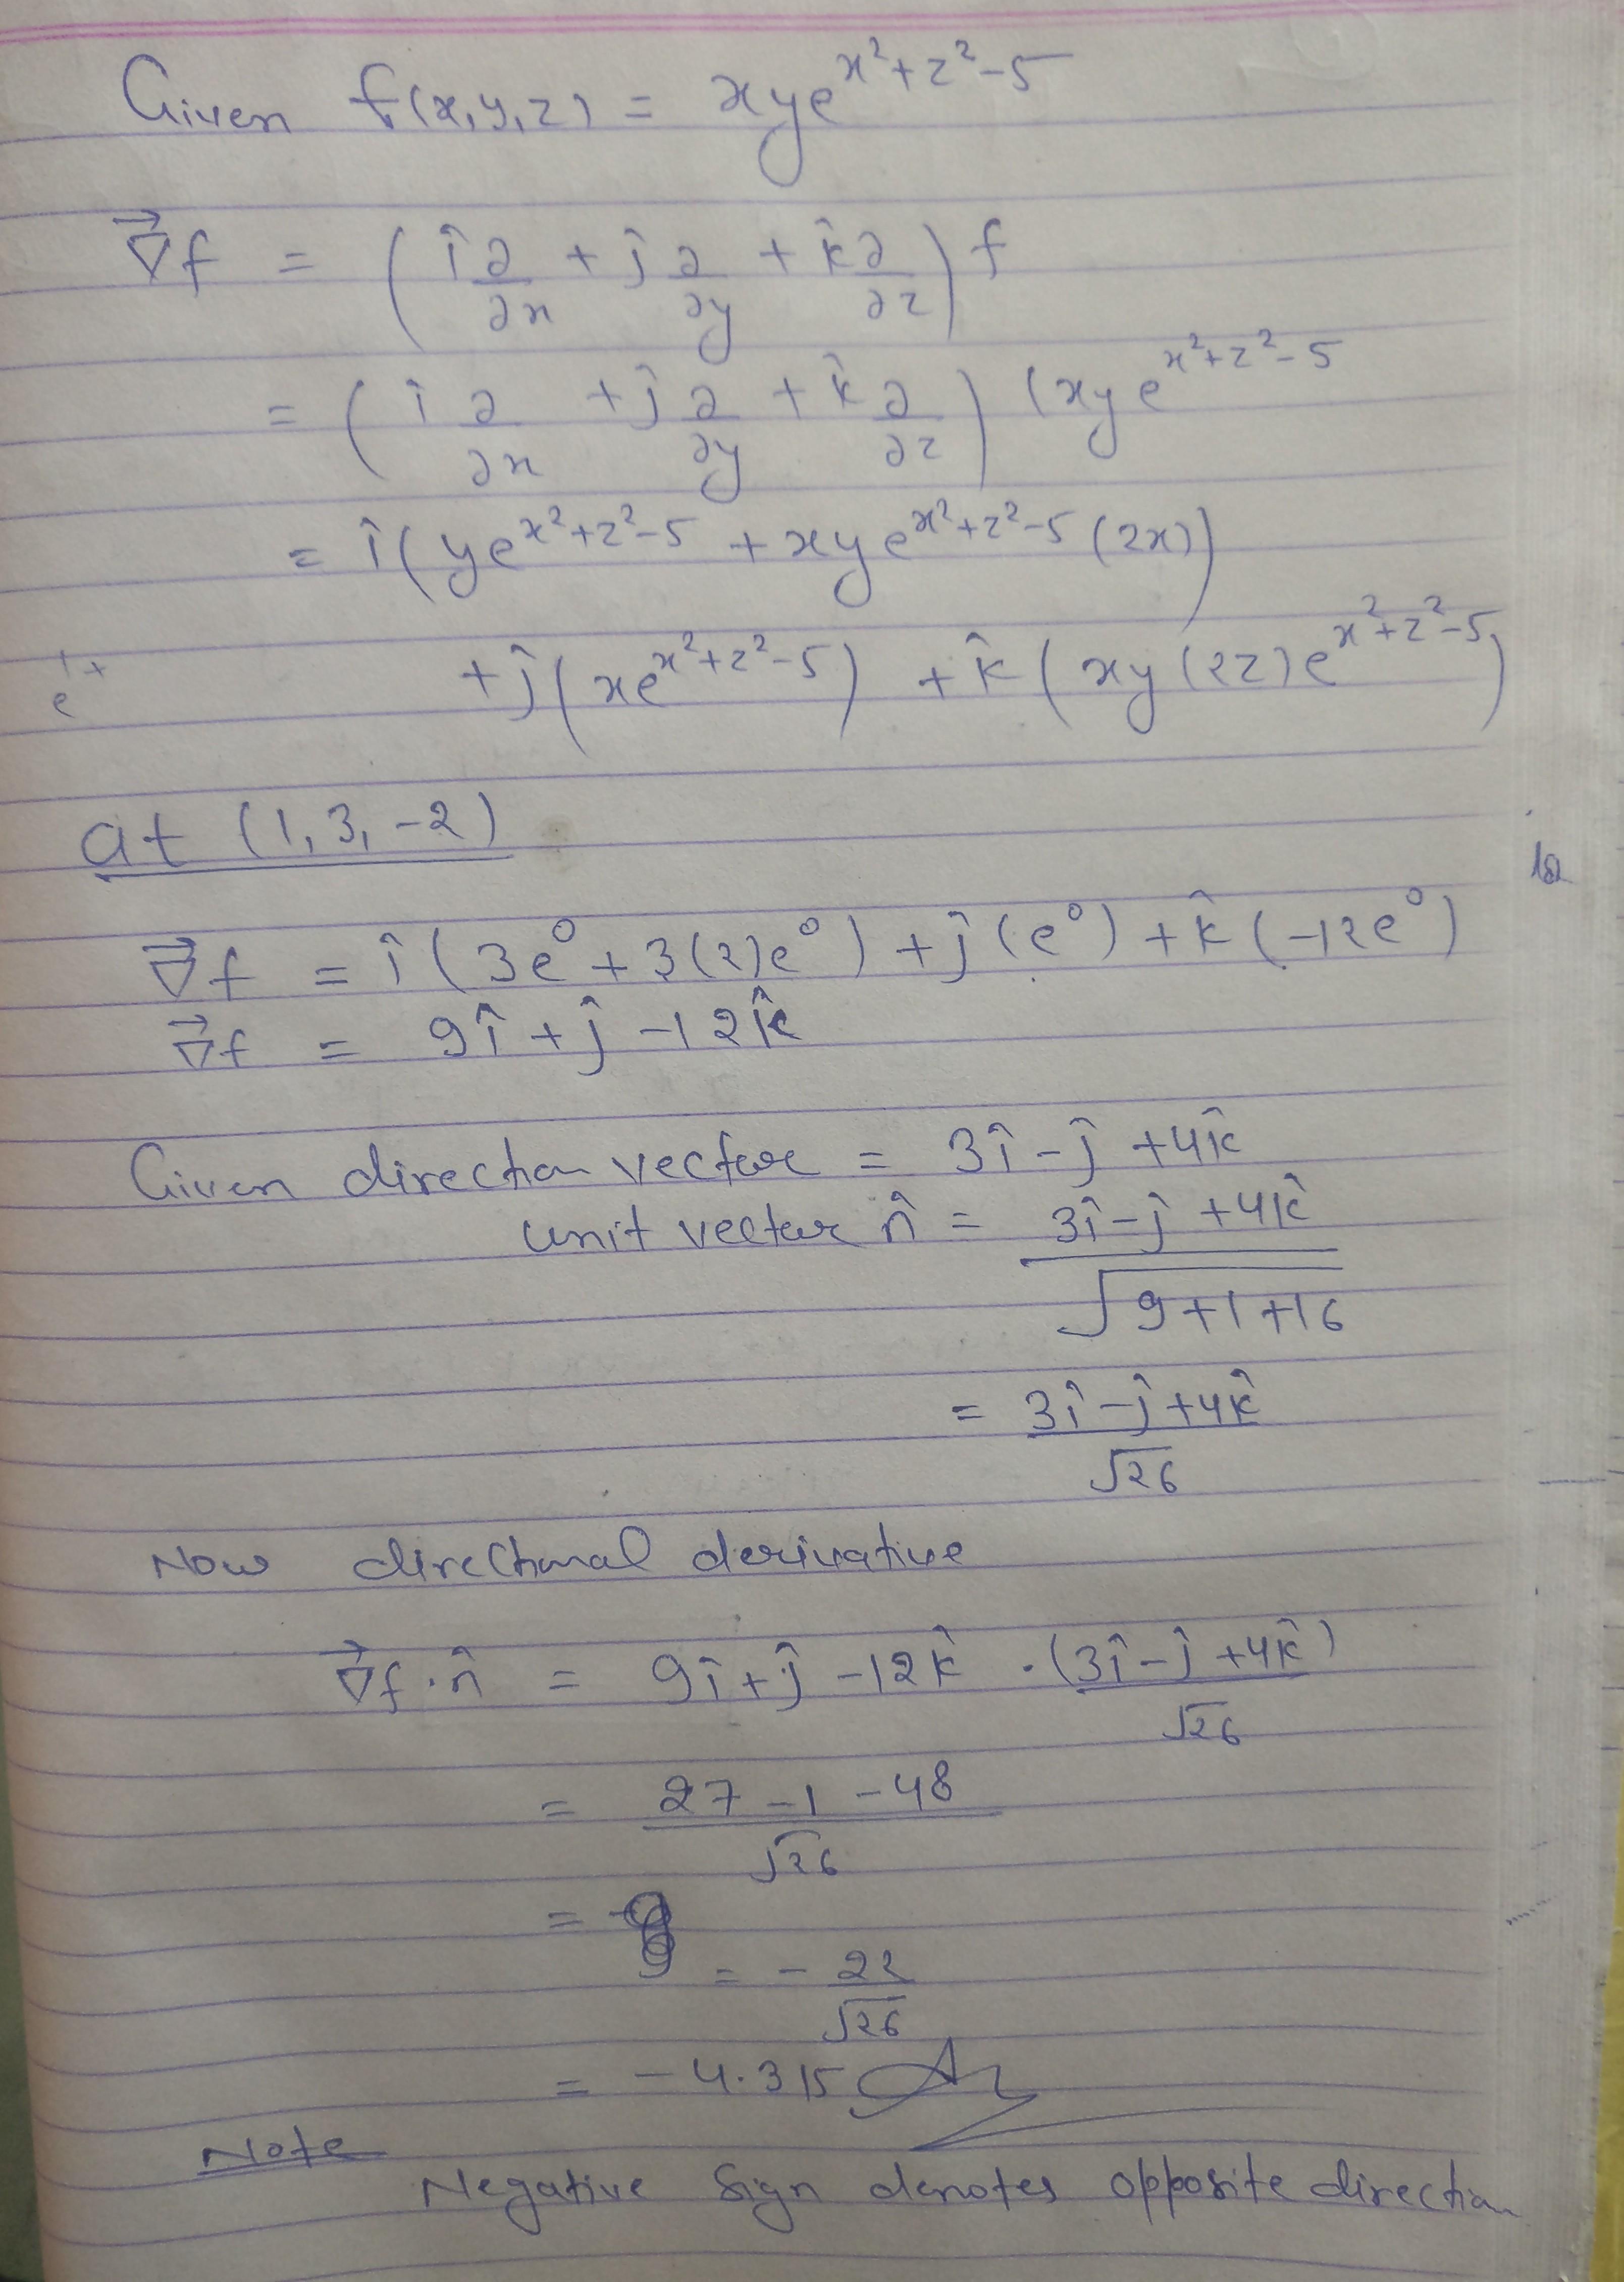 Given f(x,y,z) = xye^{x²+z²-5}
∇⃗f = (î ∂/∂x + ĵ ∂/∂y + k̂ ∂/∂z) f
= (î ∂/∂x + ĵ ∂/∂y + k̂ ∂/∂z) (xye^{x²+z²-5}
= î(ye^{x²+z²-5} + xye^{x²+z²-5}(2x))
+ĵ(xe^{x²+z²-5}) + k̂(xy(2z)e^{x²+z²-5})
at (1,3,-2)
12
∇⃗f = î(3e⁰+3(2)e⁰) + ĵ(e⁰) + k̂(-12e⁰)
∇⃗f = 9î+ĵ-12k̂
Given direction vector = 3î-ĵ+4k̂
unit vector n̂ = 3î-ĵ+4k̂/√9+1+16
= 3î-ĵ+4k̂/√26
Now directional derivative
∇⃗f·n̂ = 9î+ĵ-12k̂ .(3î-ĵ+4k̂)/√26
= 27-1-48/√26
=
= -22/√26
= -4.315
Note
Negative sign denotes opposite direction